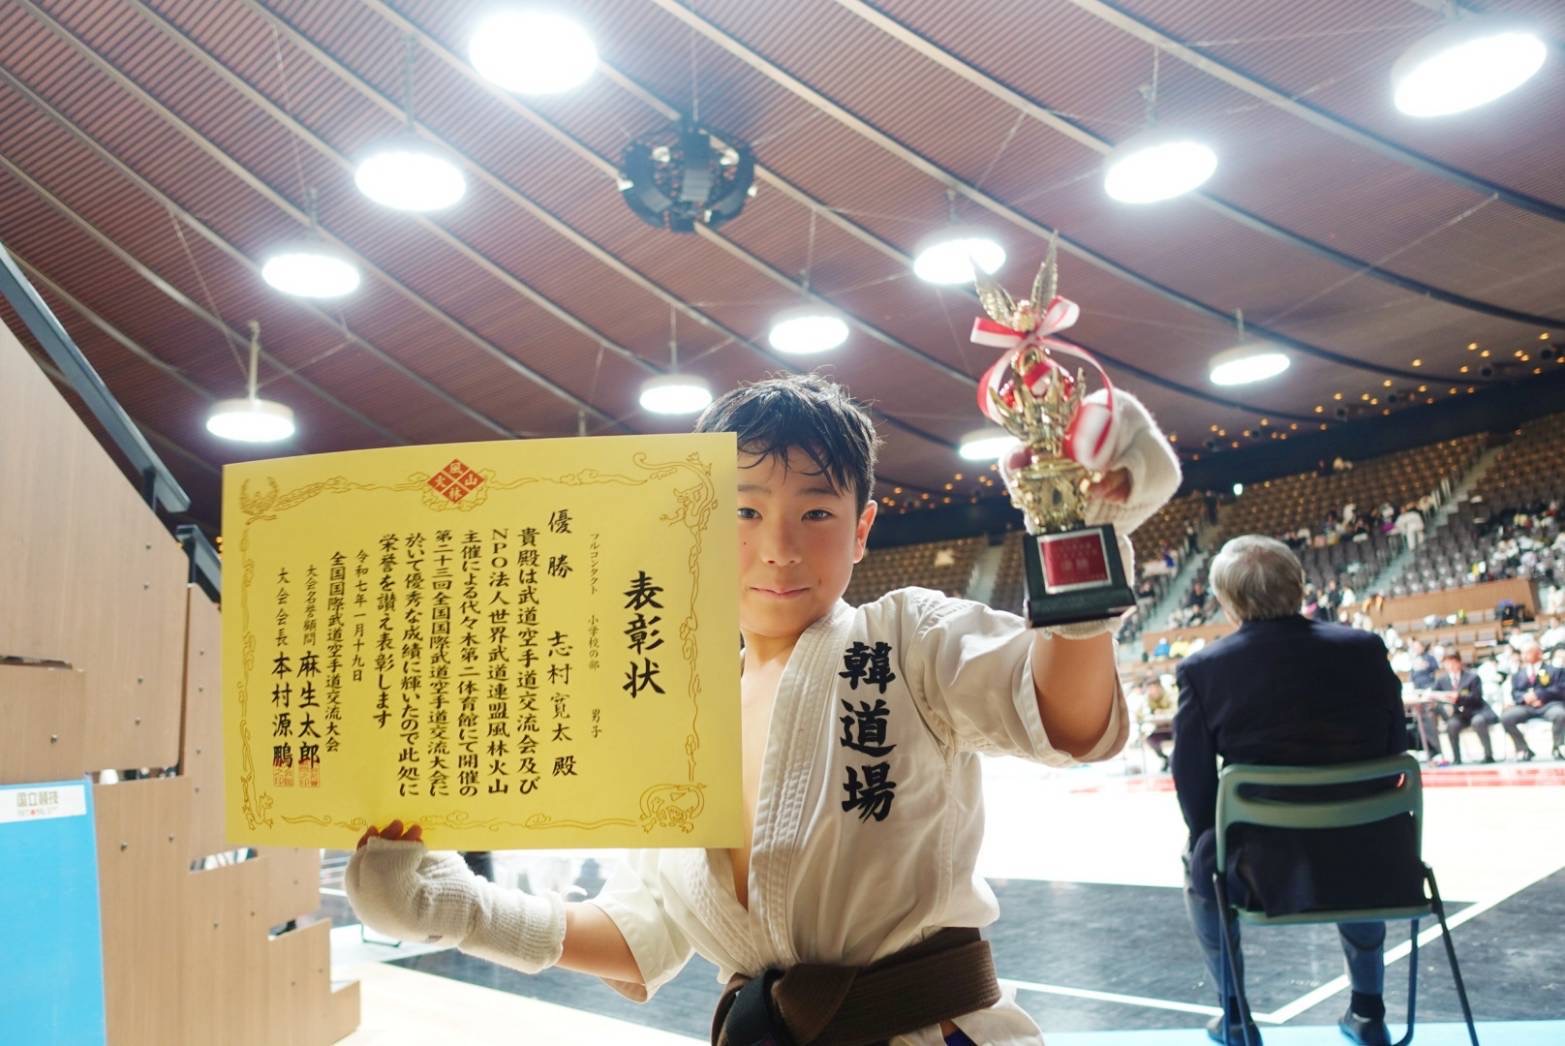 表彰状
フルコンタクト 小学校の部 男子
優勝 志村寛太殿
貴殿は武道空手道交流会及び
NPO法人世界武道連盟風林火山
主催による代々木第二体育館にて開催の
第二十三回全国国際武道空手道交流大会に
於いて優秀な成績に輝いたので此処に
栄誉を讃え表彰します
令和七年一月十九日
全国国際武道空手道交流大会
大会名誉顧問 麻生太郎
大会会長 本村源鵬
韓道場
優勝
国立競技